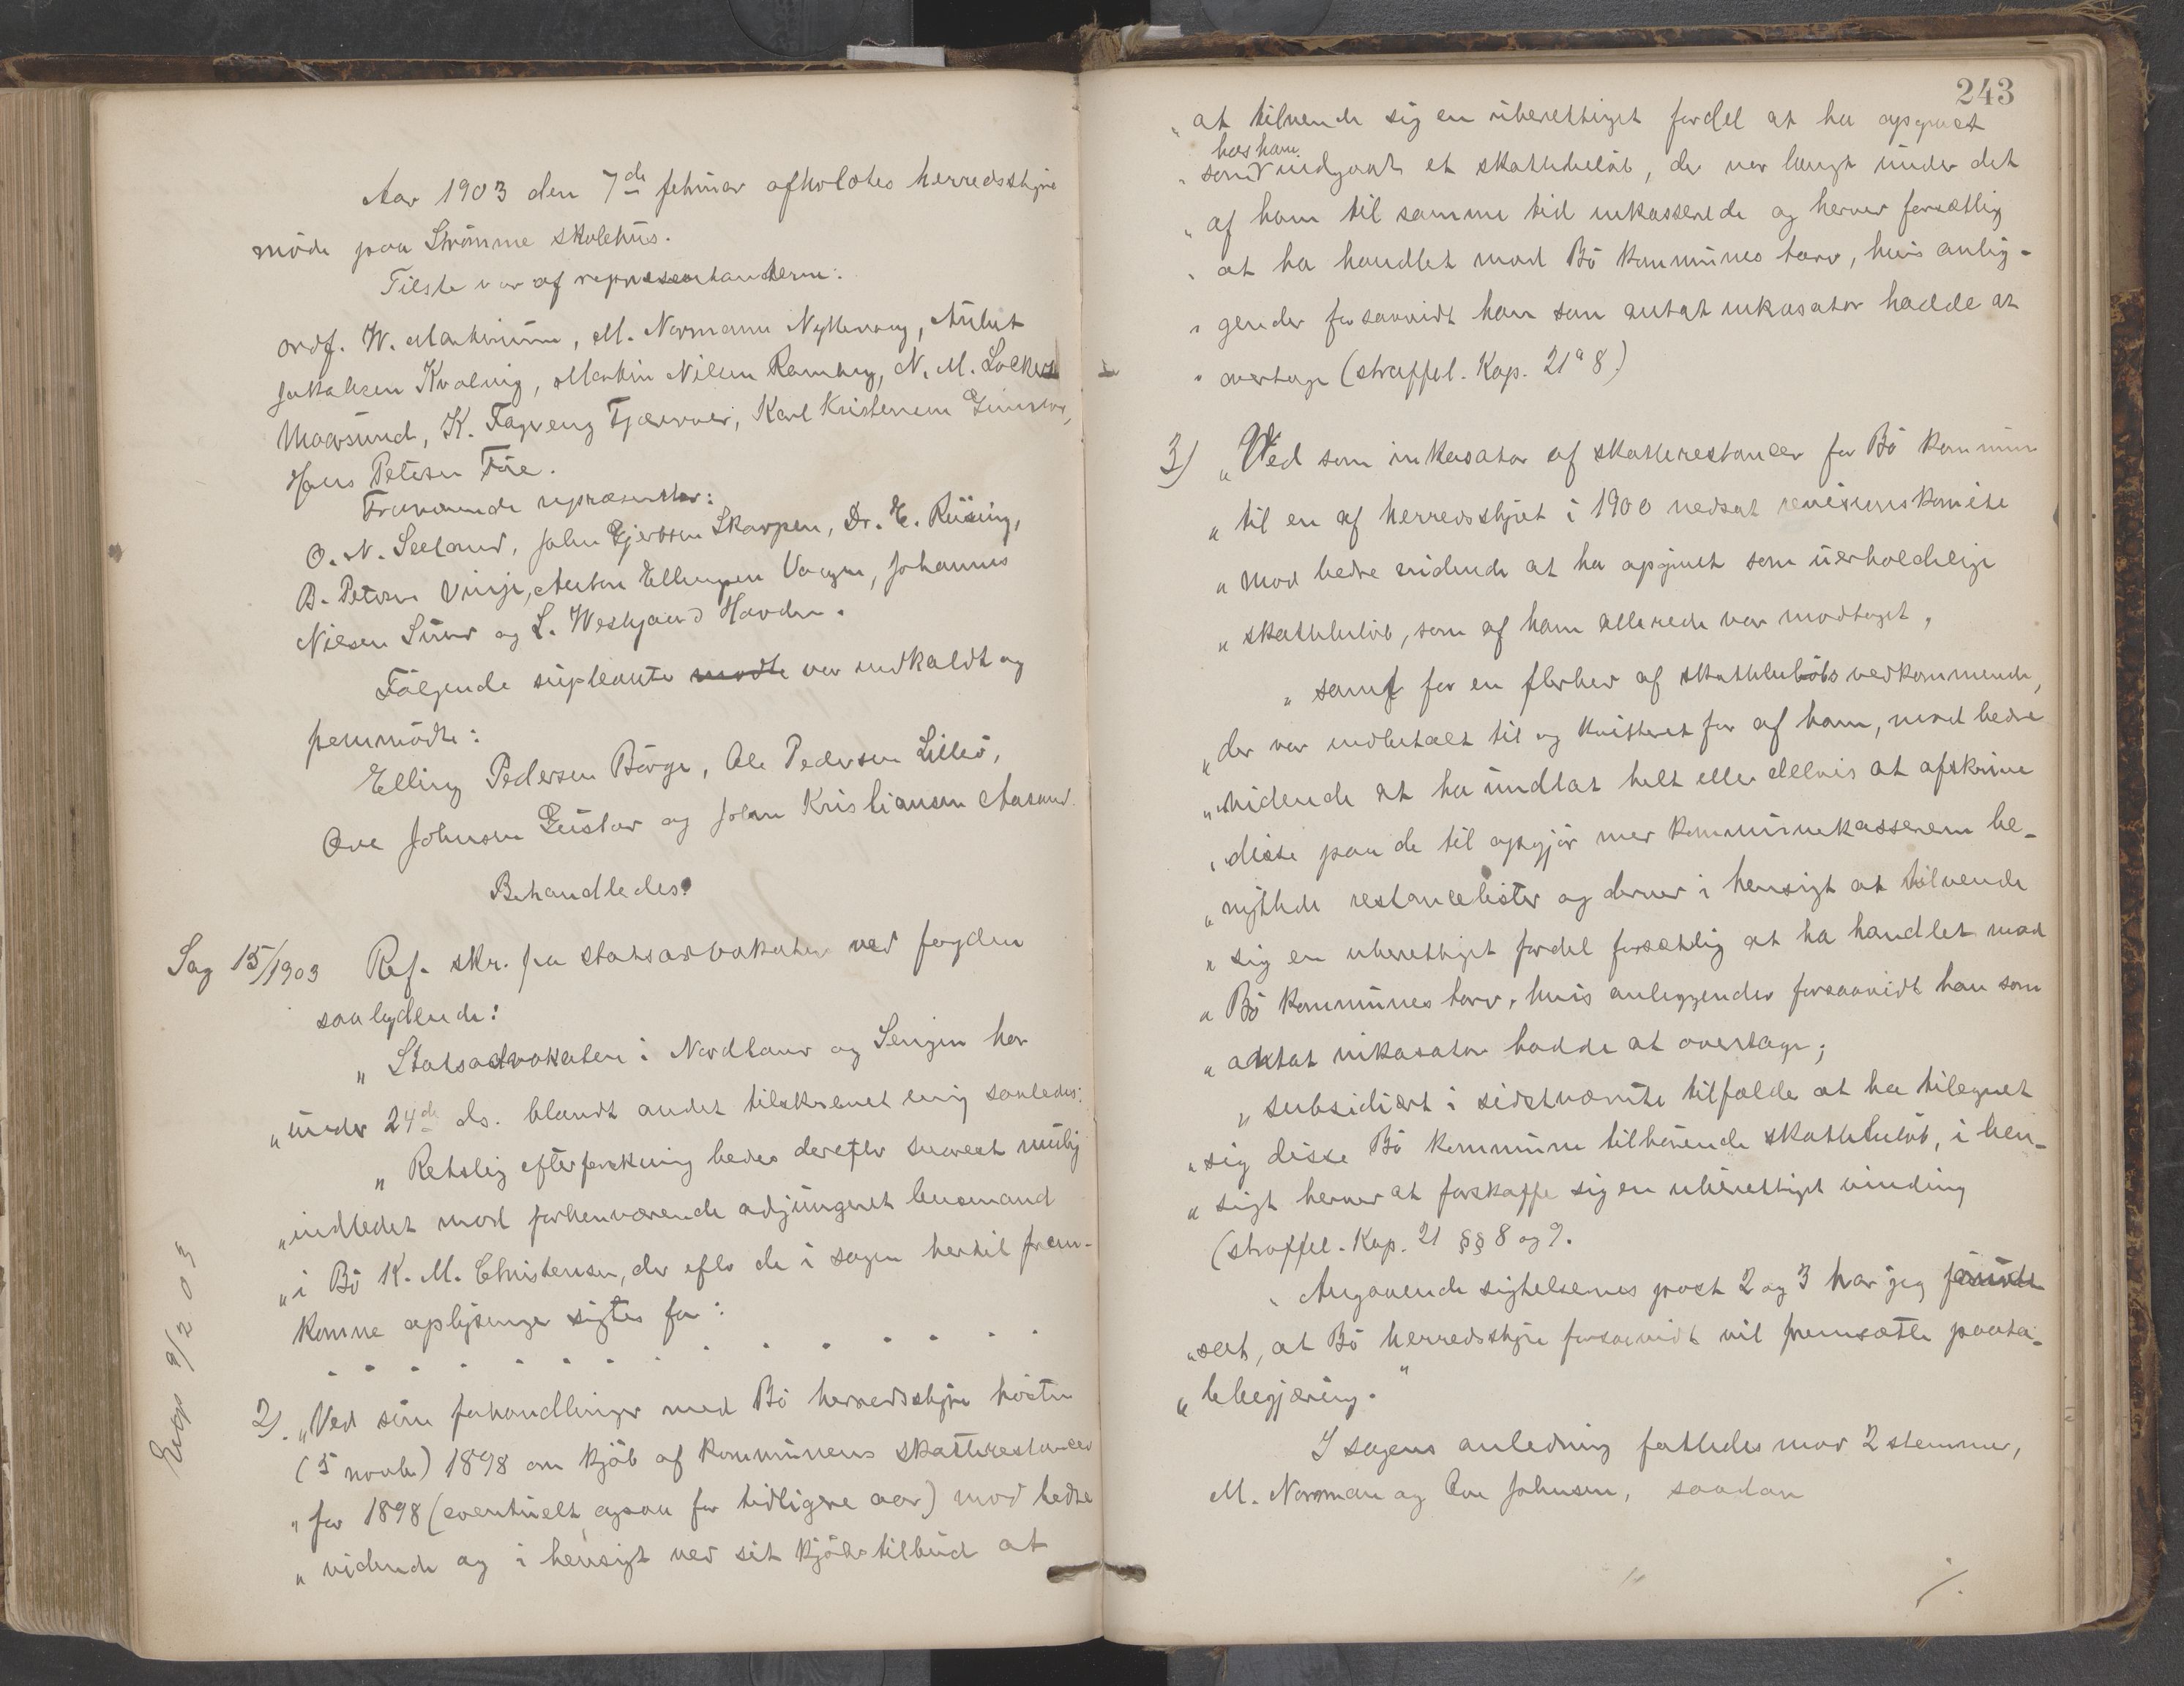 Aar 1903 den 7de februar afholdtes herredsstyre
møde paa Strømme skolehus.
Tilstede var af repræsentanterne:
ordf. W. Martinussen, M. Normann Nykvaag, Anbut
Jakobsen Kvalvig, Martin Nilsen Ramberg, N. M. Lockert
Maarsund, K. Fagereng Fjærvoll, Karl Kristensen Guustad,
Hans Petersen Føre.
Fraværende repræsenter:
O. N. Seeland, John Gjertsen Skarpen, Dr. E. Riising,
B. Petersen Vinje, Anton Ellingsen Vaagen, Johannes
Nilsen Sund og L. Westgaard Hovden.
Følgende supleanter modte var indkaldt og
fremmødte:
Elling Pedersen Børge, Ole Pedersen Lilleø,
Ove Johnsen Gustav og Johan Kristiansen Aasand.
Behandledes:
Sag 15/1903 Ref. skr. fra statsadvokaten ved fogden
saalydende:
„Statsadvokaten i Nordland og Senjen har
„under 24de ds. blandt andet tilskrevet mig saaledes:
„Retslig efterforskning bedes derefter snarest mulig
„indledet mod forhenværende adjungeret lensmand
„i Bø K. M. Christensen, der efter de i sagen hertil frem-
komne oplysninger sigtes for:
. . . . . . . . . . . . .
2). „Ved sine forhandlinger med Bø herredsstyre høsten
(5 novbr) 1898 om kjøb af kommunens skatterestancer
„for 1898 (eventuelt ogsaa for tidligere aar) mod bedre
„vidende og i hensigt ved sit kjøbstilbud at
Exp 9/2 03
243
„at tilvende sig en uberettiget fordel at ha opgivet
hos ham
„som indgaat et skattebeløb, der var langt under det
„af ham til samme tid inkasserede og herved forsætlig
„at ha handlet mod Bø kommunes tarv, hvis anlig-
„gender forsaavidt han som antat inkasator hadde at
„overtage (straffel. Kap. 21 § 8.)
3) „Ved som inkasator af skatterestancer for Bø kommune
„til en af herredsstyret i 1900 nedsat revisionskomite
„mod bedre vidende at ha opgivet som uerholdelige
„skattebeløb, som af ham allerede var modtaget,
„samt for en flerhed af skattebeløbs vedkommende,
„der var indbetalt til og kvitteret for af ham, mod bedre
„vidende at ha undlat helt eller delvis at afskrive
„disse paa de til opgjør med kommunekassereren be-
„nyttede restancelister og derved i hensigt at tilvende
„sig en uberettiget fordel forsætlig at ha handlet mod
„Bø kommunes tarv, hvis anleggender forsaavidt han som
„antat inkasator hadde at overtage;
„subsidiært i sidstnævnte tilfælde at ha tilegnet
„sig disse Bø kommune tilhørende skattebeløb, i hen-
„sigt herved at forskaffe sig en uberettiget vinding
(straffel. Kap. 21 §§ 8 og 9.
„Angaaende sigtelsernes post 2 og 3 har jeg forud-
„sat, at Bø herredsstyre forsaavidt vil fremsætte paata-
„lebegjæring.“
I sagens anledning fattedes mod 2 stemmer,
M. Norman og Ove Johnsen, saadan
./.